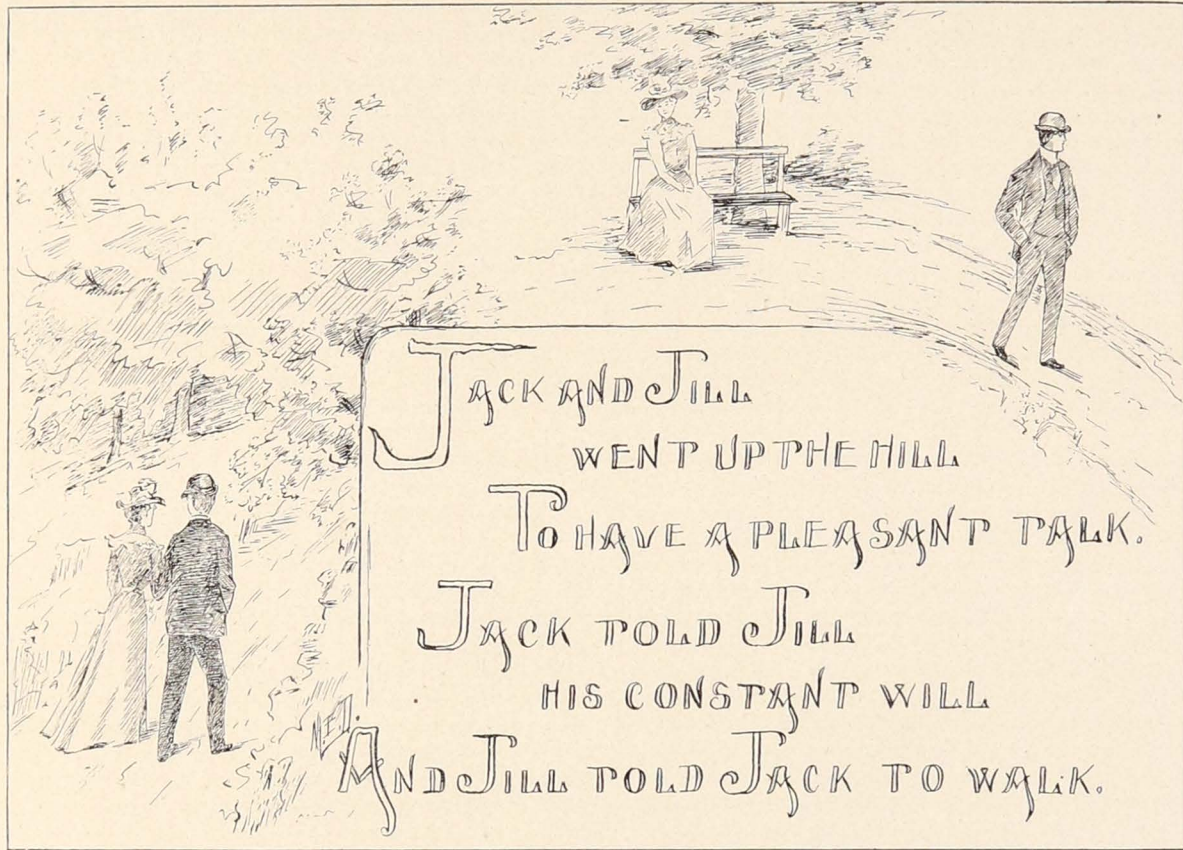 JACK AND JILL
WENT UP THE HILL
TO HAVE A PLEASANT TALK.
JACK TOLD JILL
HIS CONSTANT WILL
AND JILL TOLD JACK TO WALK.